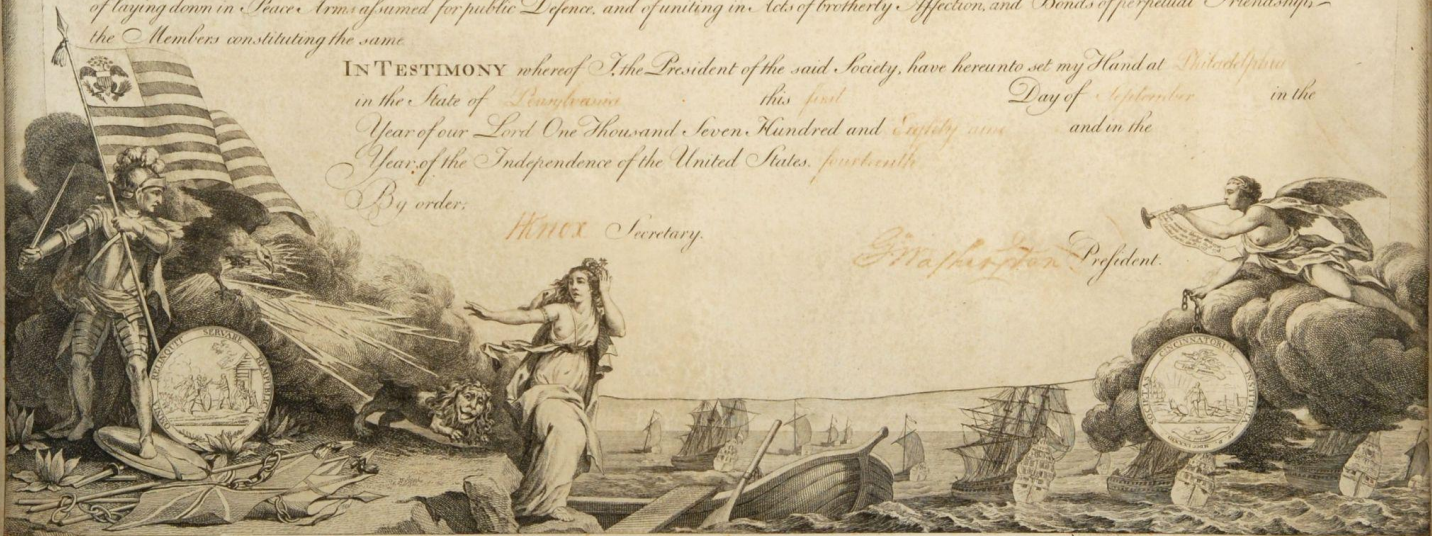 of laying down in Peace Arms assumed for public Defence, and of uniting in Acts of brotherly Affection, and Bonds of perpetual Friendship,
the Members constituting the same.
IN TESTIMONY whereof I, the President of the said Society, have hereunto set my Hand at Philadelphia
in the State of Pensylvania this first Day of September in the
Year of our Lord One Thousand Seven Hundred and Eighty nine and in the
Year of the Independence of the United States. fourteenth
By order;
HKnox Secretary.
G Washington President.
RELINQUIT SERVARE REMPUB
SOCIETAS CINCINNATORUM INSTITUTA